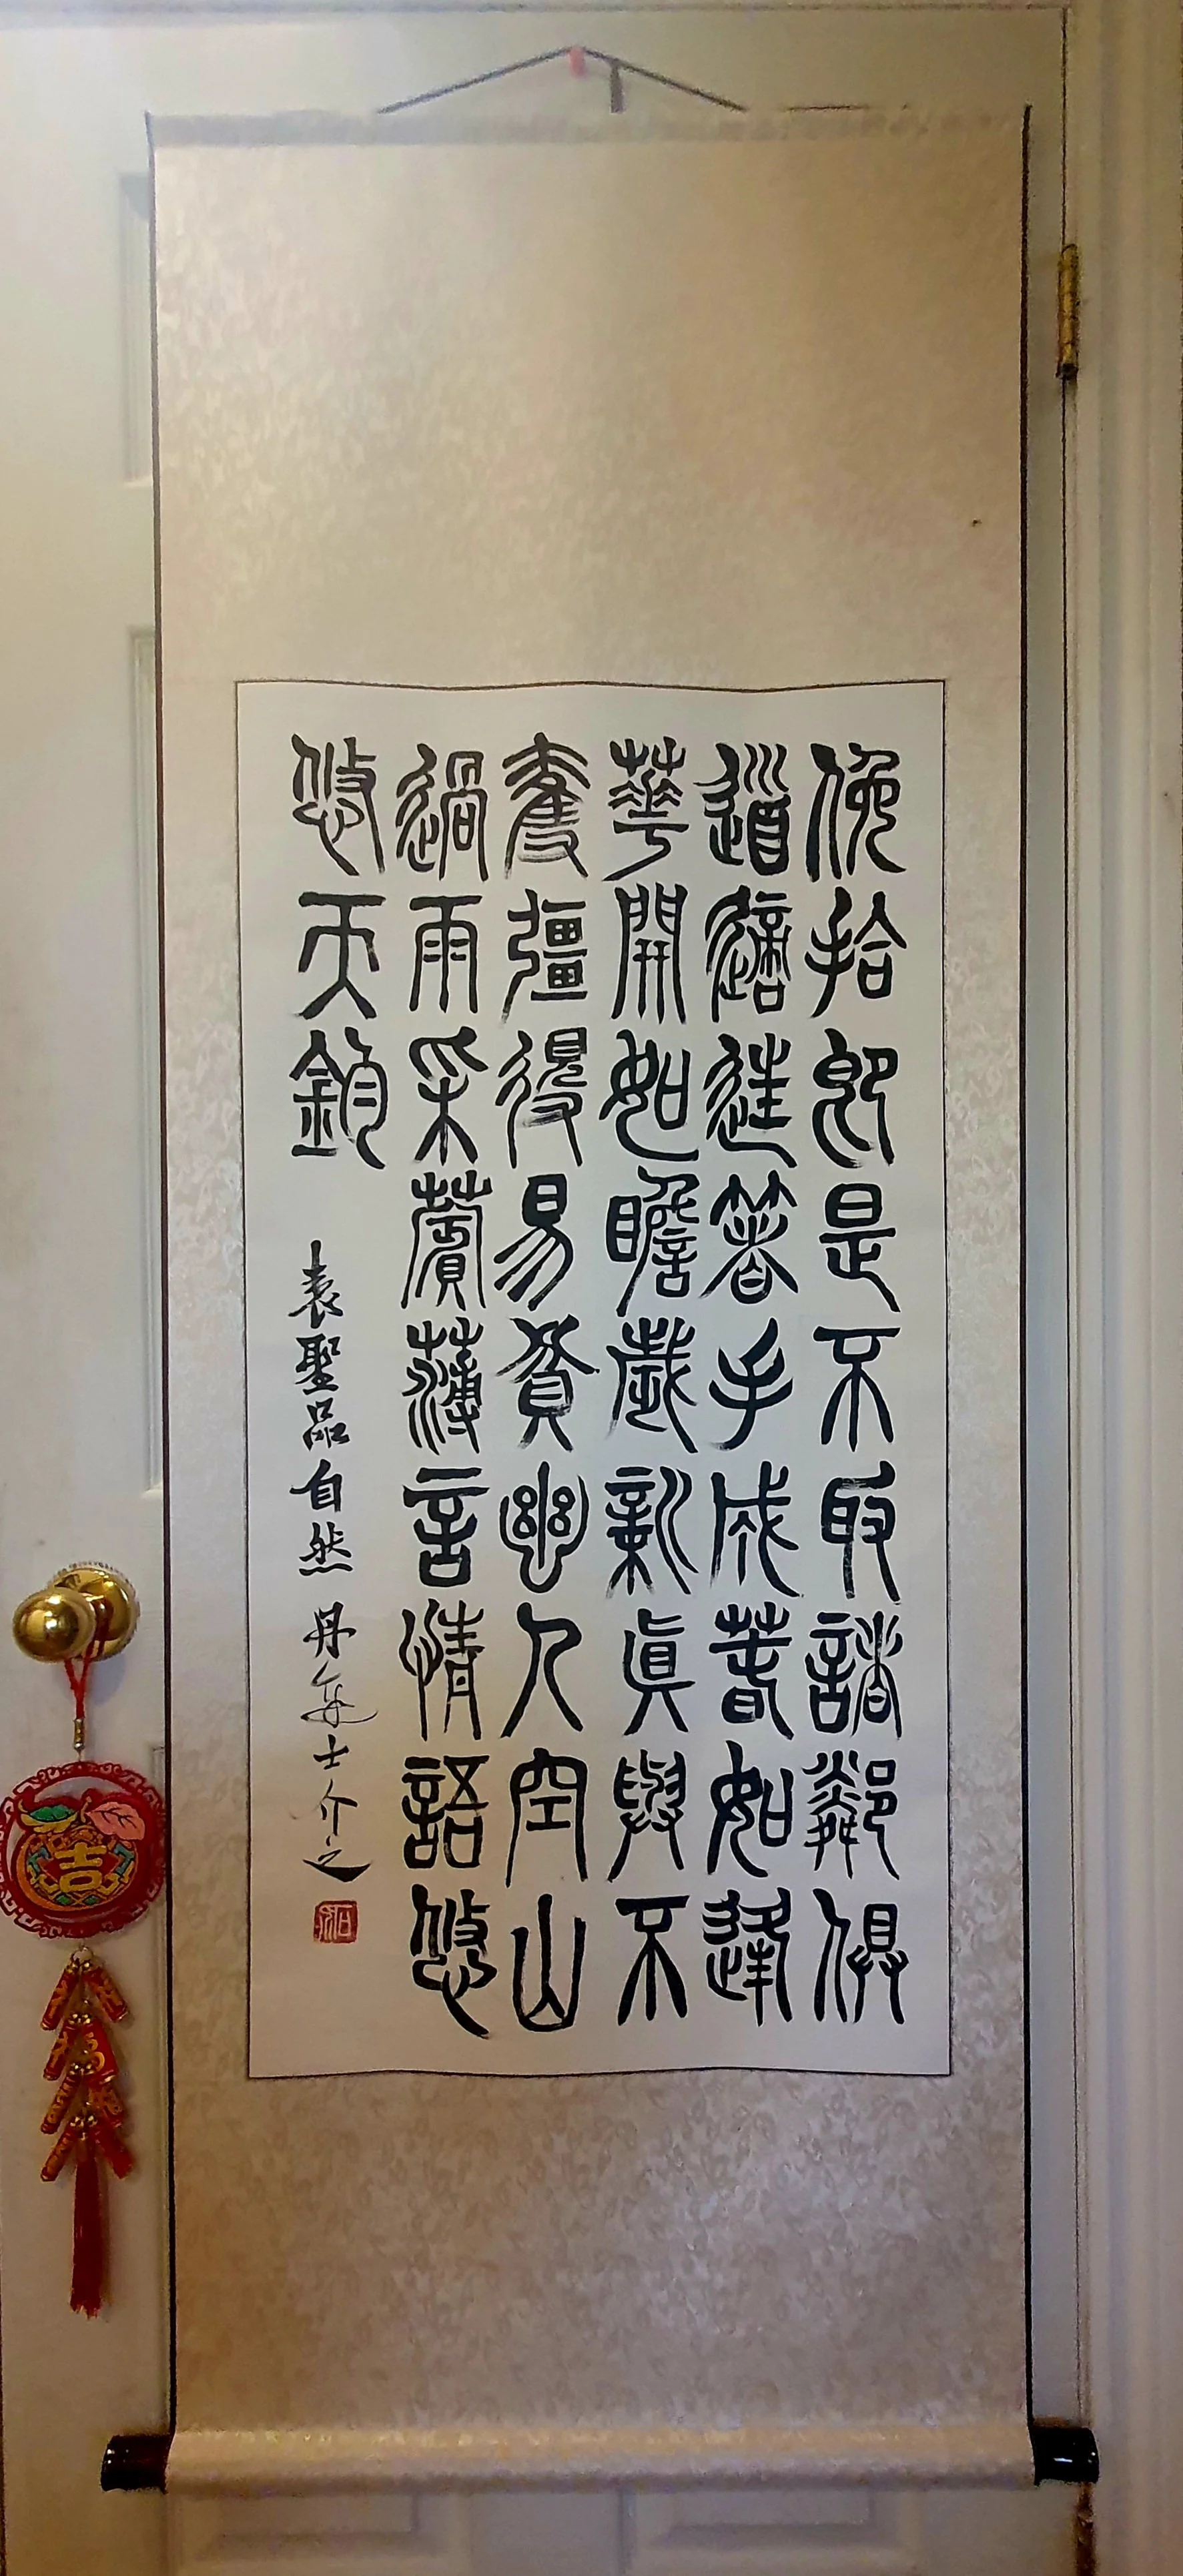 俛拾即是不取諸鄰俱
道適往箸手成春如逢
華開如瞻歲新眞與不
奪彊得易貧幽人空山
過雨采薲薄言情語悠
悠天鈞
表聖品自然 丹士介之
吉